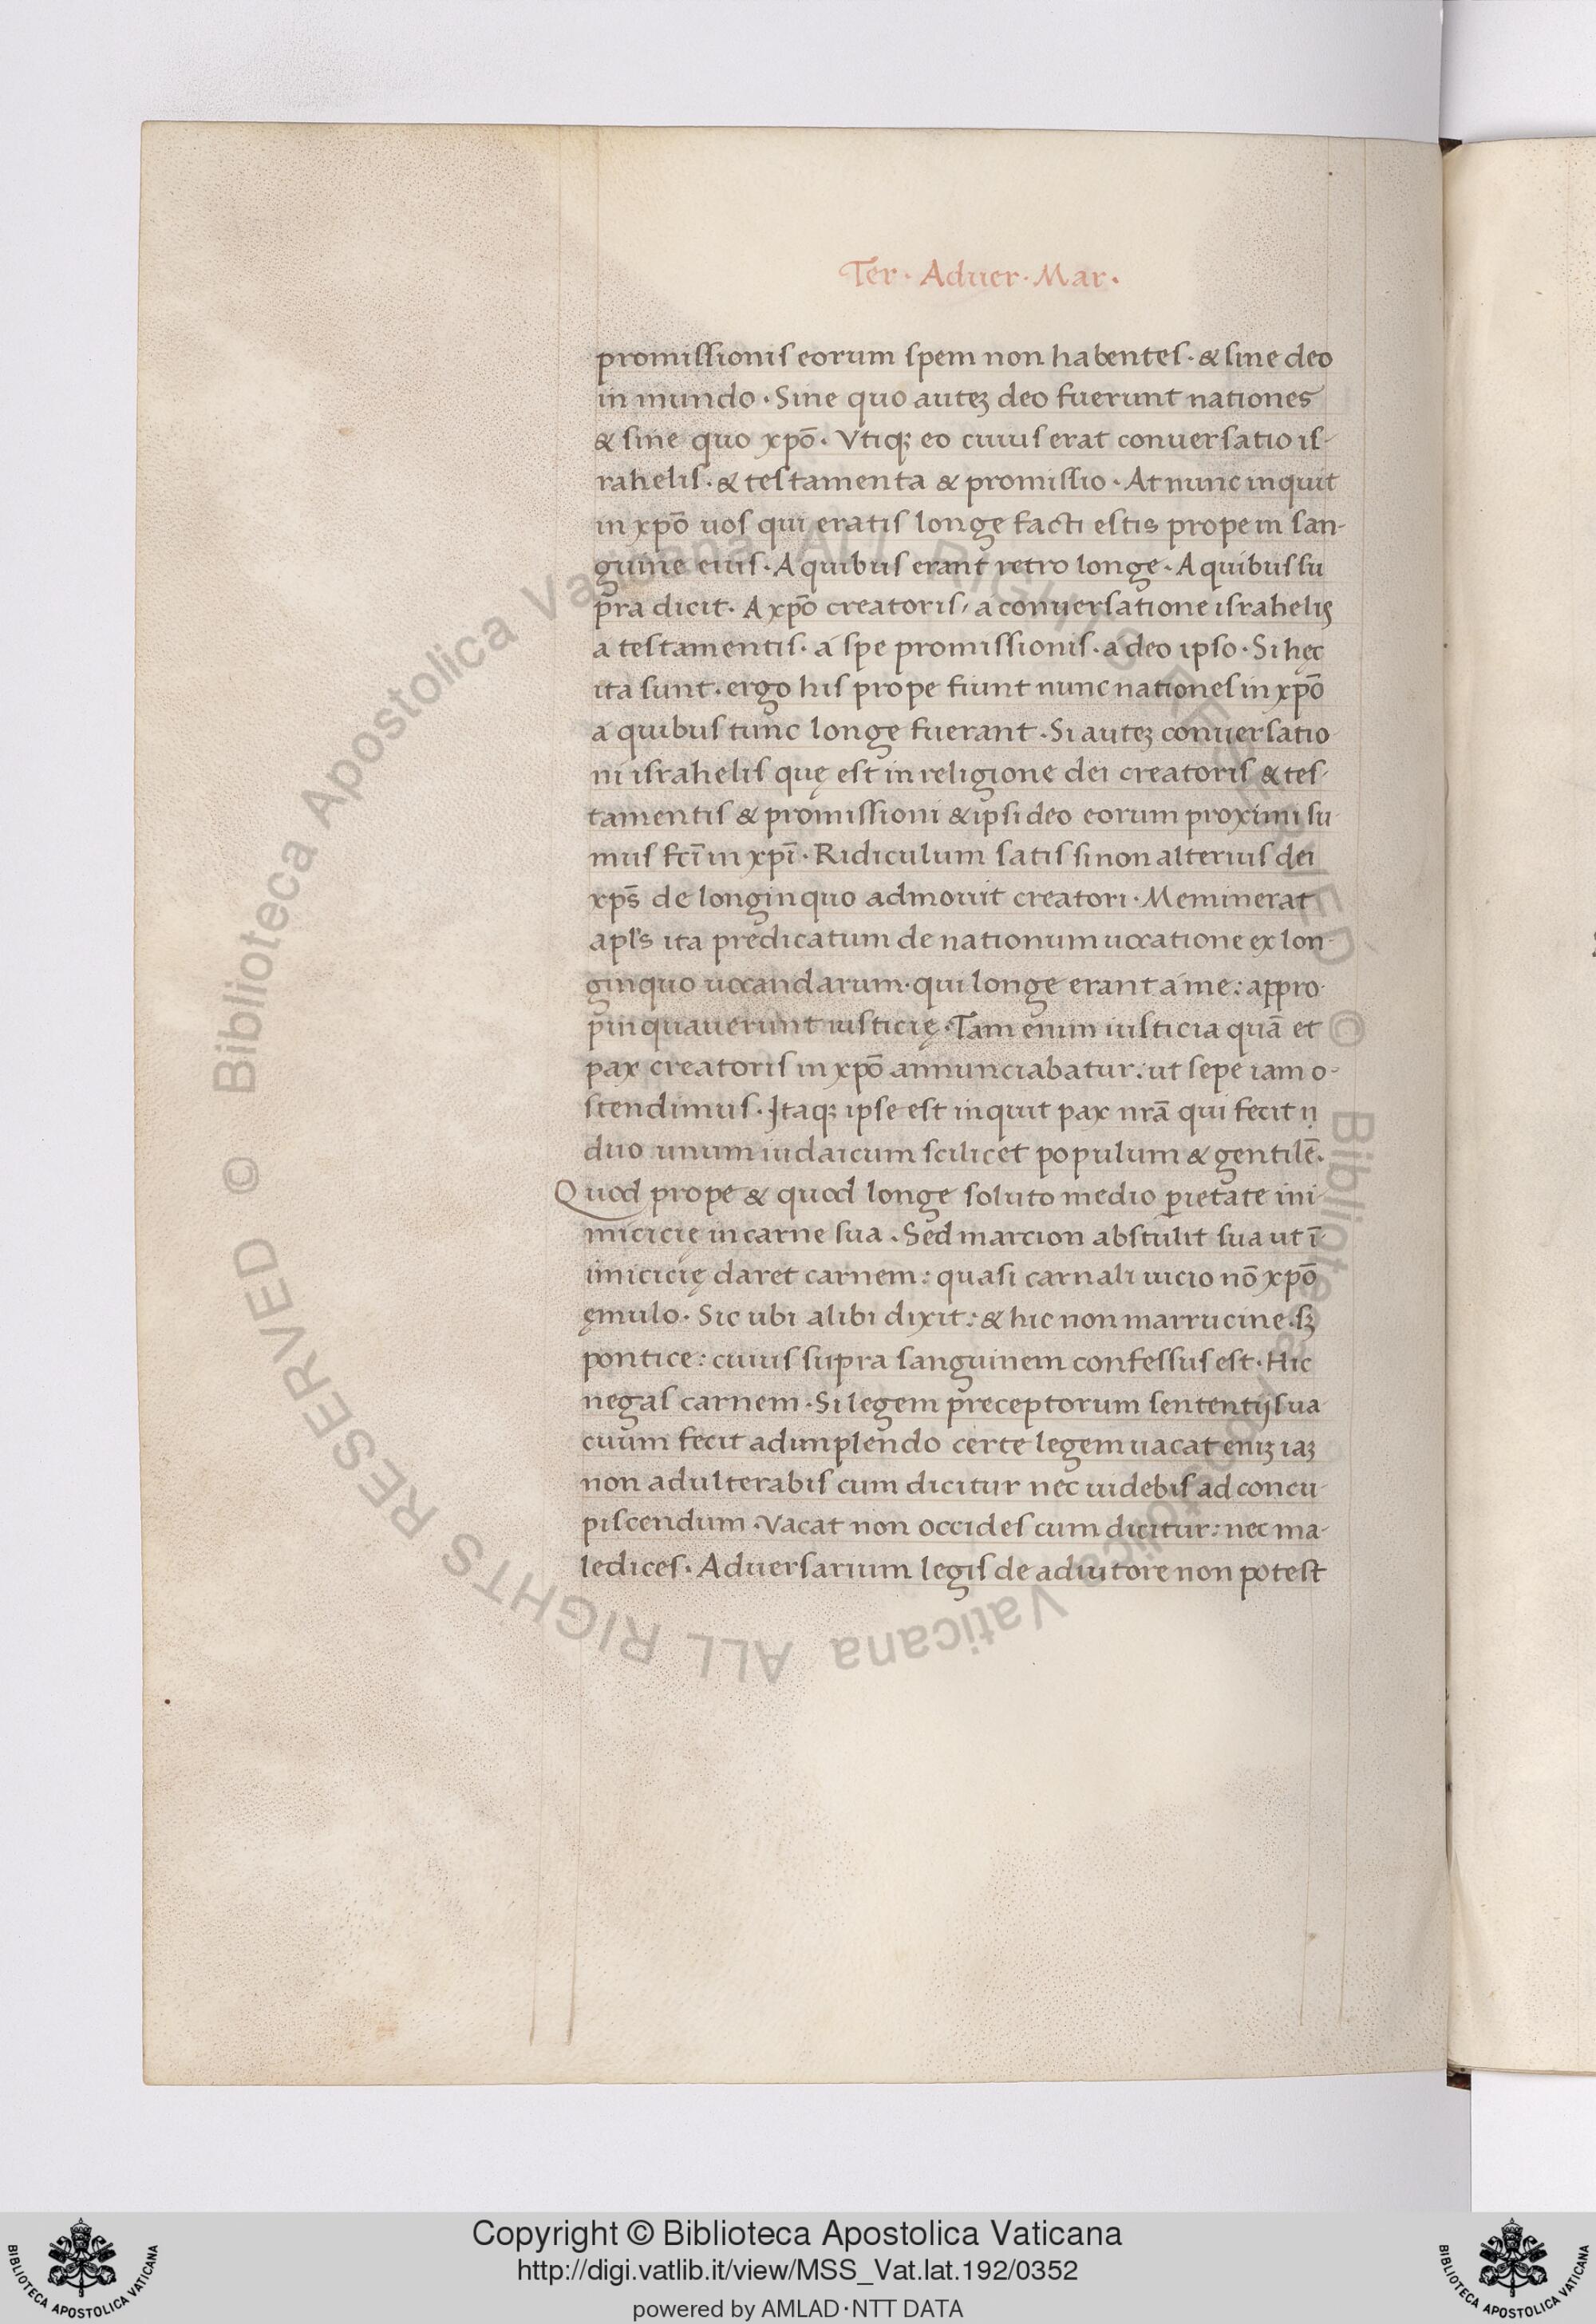 Ter · Aduer · Mar ·
promissionis eorum spem non habentes · & sine deo
in mundo · Sine quo auteꝫ deo fuerunt nationes
& sine quo xpō · Vtiqꝫ eo cuius erat conuersatio is-
rahelis · & testamenta & promissio · At nunc inquit
in xpō uos qui eratis longe facti estis prope in san-
guine eius · A quibus erant retro longe · A quibus su
pra dicit · A xpō creatoris / a conuersatione israhelis
a testamentis · a spe promissionis · a deo ipso · Si hęc
ita sunt · ergo his prope fiunt nunc nationes in xpō
a quibus tunc longe fuerant · Si auteꝫ conuersatio
ni israhelis quę est in religione dei creatoris & tes-
tamentis & promissioni & ipsi deo eorum proximi su-
mus fcī in xpī · Ridiculum satis si non alterius dei
xps̄ de longinquo admouit creatori · Meminerat
apl's ita predicatum de nationum uocatione ex lon-
ginquo uocandarum · qui longe erant a me : appro-
pinquauerunt iusticię · Tam enim iusticia quā et
pax creatoris in xpō annunciabatur : ut sepe iam o-
stendimus · Itaqꝫ ipse est inquit pax nrā qui fecit ıı
duo unum iudaicum scilicet populum & gentilē ·
Quod prope & quod longe soluto medio ꝑietate ini-
micicię in carne sua · Sed marcion abstulit sua ut ī-
imicicię daret carnem : quasi carnali uicio nō xpō
ęmulo · Sic ubi alibi dixit : & hic non marrucine · sꝫ
pontice : cuius supra sanguinem confessus est · Hic
negas carnem · Si legem preceptorum sententijs ua
cuum fecit adimplendo certe legem uacat eniꝫ iaꝫ
non adulterabis cum dicitur nec uidebis ad concu-
piscendum · Vacat non occides cum dicitur : nec ma-
ledices · Aduersarium legis de adiutore non potest
© Biblioteca Apostolica Vaticana ALL RIGHTS RESERVED
© Biblioteca Apostolica Vaticana ALL RIGHTS RESERVED
Copyright © Biblioteca Apostolica Vaticana
http://digi.vatlib.it/view/MSS_Vat.lat.192/0352
powered by AMLAD·NTT DATA
BIBLIOTECA APOSTOLICA VATICANA
BIBLIOTECA APOSTOLICA VATICANA